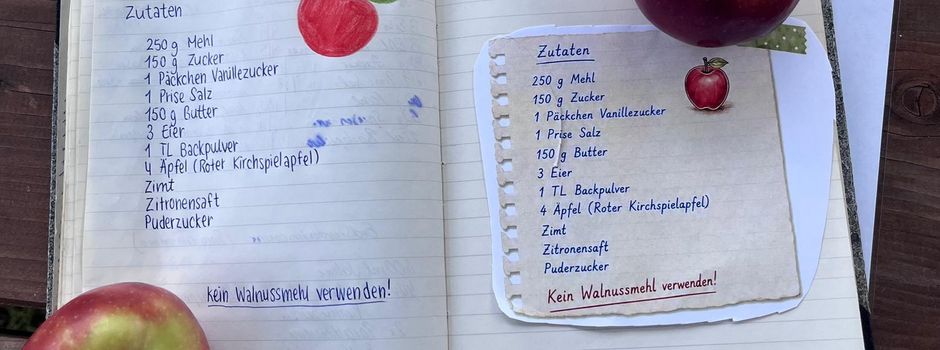 Zutaten
250 g Mehl
150 g Zucker
1 Päckchen Vanillezucker
1 Prise Salz
150 g Butter
3 Eier
1 TL Backpulver
4 Äpfel (Roter Kirchspielapfel)
Zimt
Zitronensaft
Puderzucker
Kein Walnussmehl verwenden!
Zutaten
250 g Mehl
150 g Zucker
1 Päckchen Vanillezucker
1 Prise Salz
150 g Butter
3 Eier
1 TL Backpulver
4 Äpfel (Roter Kirchspielapfel)
Zimt
Zitronensaft
Puderzucker
Kein Walnussmehl verwenden!